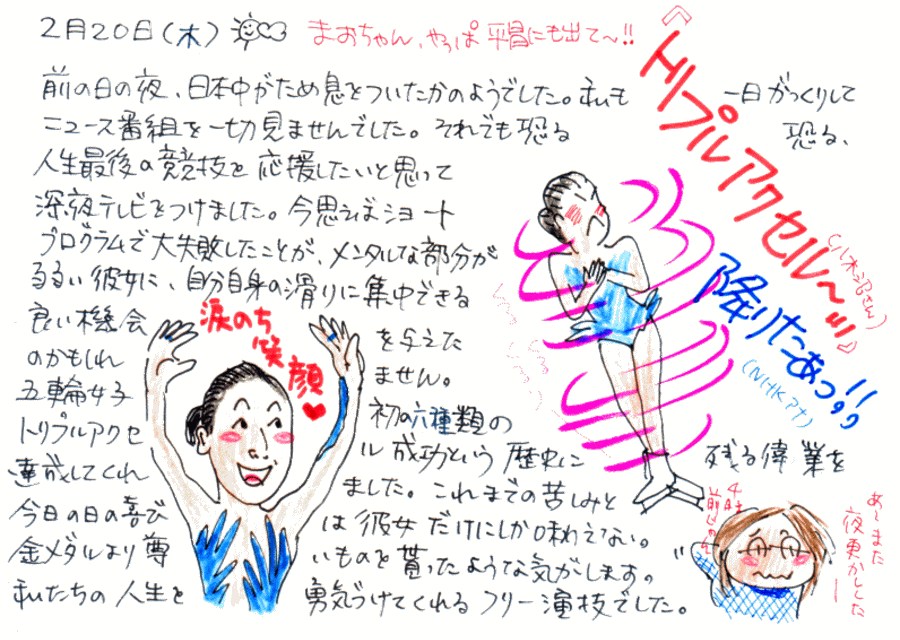 2月20日(木)
まおちゃん、やっぱ平昌にも出て〜!!
前の日の夜、日本中がため息をついたかのようでした。私も一日がっくりして
ニュース番組を一切見ませんでした。それでも恐る恐る、
人生最後の競技を応援したいと思って
深夜テレビをつけました。今思えばショート
プログラムで大失敗したことが、メンタルな部分が
るるい彼女に、自分自身の滑りに集中できる
良い機会を与えた
のかもしれません。
五輪女子初の六種類の
トリプルアクセル成功という歴史に残る偉業を
達成してくれました。これまでの苦しみと
今日の日の喜びは彼女だけにしか味わえない。
金メダルより尊いものを貰ったような気がします。
私たちの人生を勇気づけてくれるフリー演技でした。
涙のち
笑顔♥
《トリプルアクセル〜ッ》
(八木沼さん)
降りたあっ!!
(NHKアナ)
あ〜また
夜更かしした
4時
前じゃん